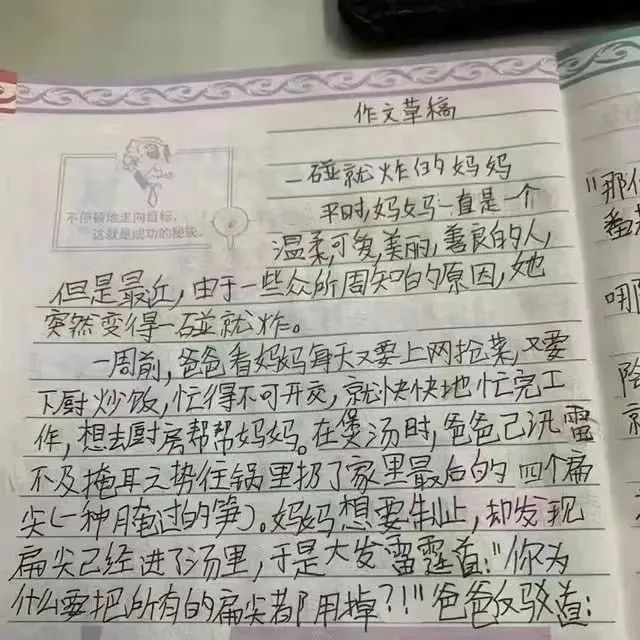 作文草稿
不停顿地走向目标，
这就是成功的秘诀。
一碰就炸的妈妈
平时,妈妈一直是一个
温柔,可爱,美丽,善良的人,
但是最近,由于一些众所周知的原因,她
突然变得一碰就炸。
一周前,爸爸看妈妈每天又要上网抢菜,又要
下厨炒饭,忙得不可开交,就快快地忙完工
作,想去厨房帮帮妈妈。在煲汤时,爸爸已汛雷
不及掩耳之势往锅里扔了家里最后的四个扁
尖(一种腌过的笋)。妈妈想要制止,却发现
扁尖已经进了汤里,于是大发雷霆道:"你为
什么要把所有的扁尖都用掉?!"爸爸反驳道:
"那
番
哪
除
就